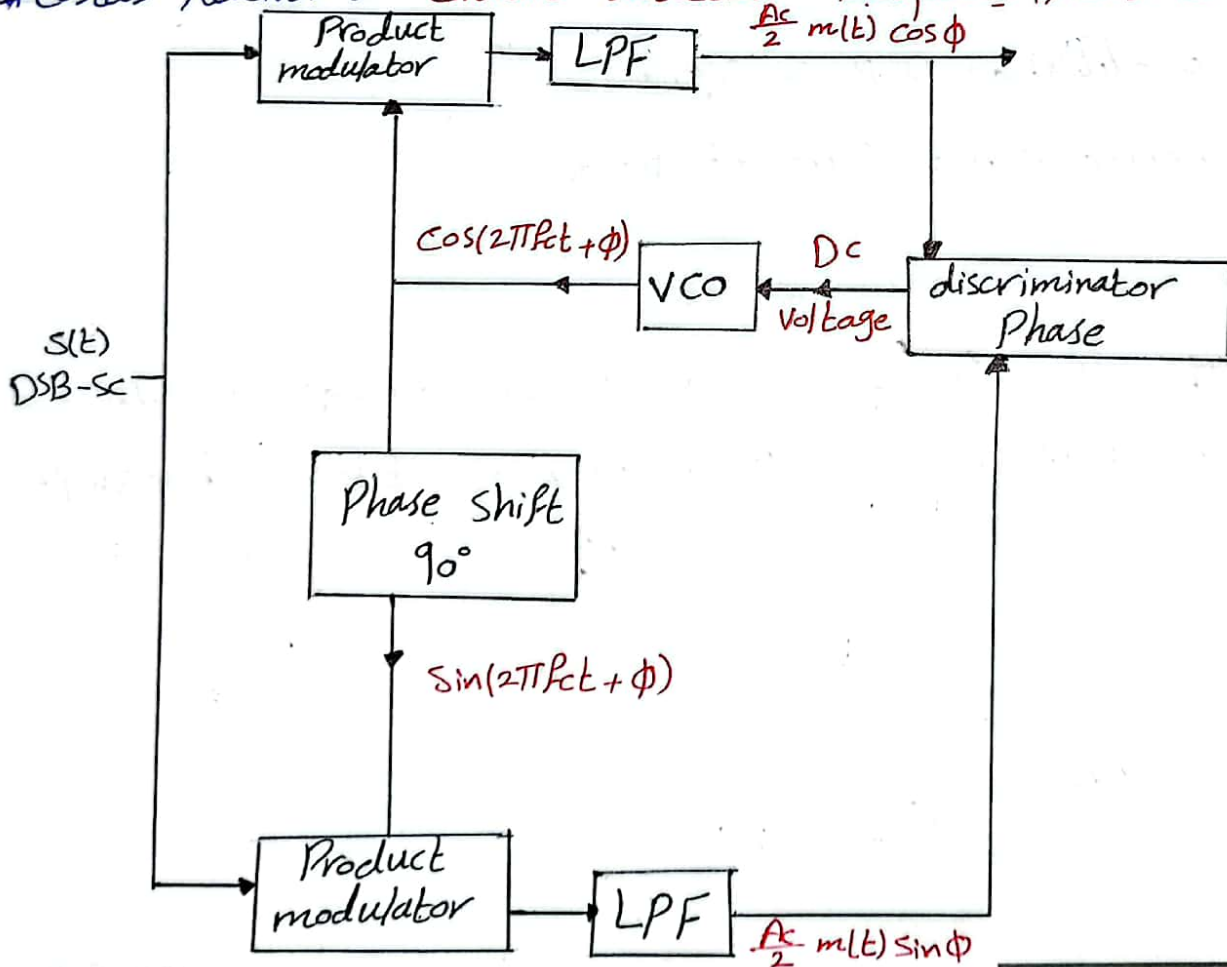 Product
modulator
LPF
Ac/2 m(t) cosϕ
cos(2πfct + ϕ)
VCO
Dc
Voltage
discriminator
Phase
S(t)
DSB-SC
Phase shift
90°
Sin(2πfct + ϕ)
Product
modulator
LPF
Ac/2 m(t) Sinϕ